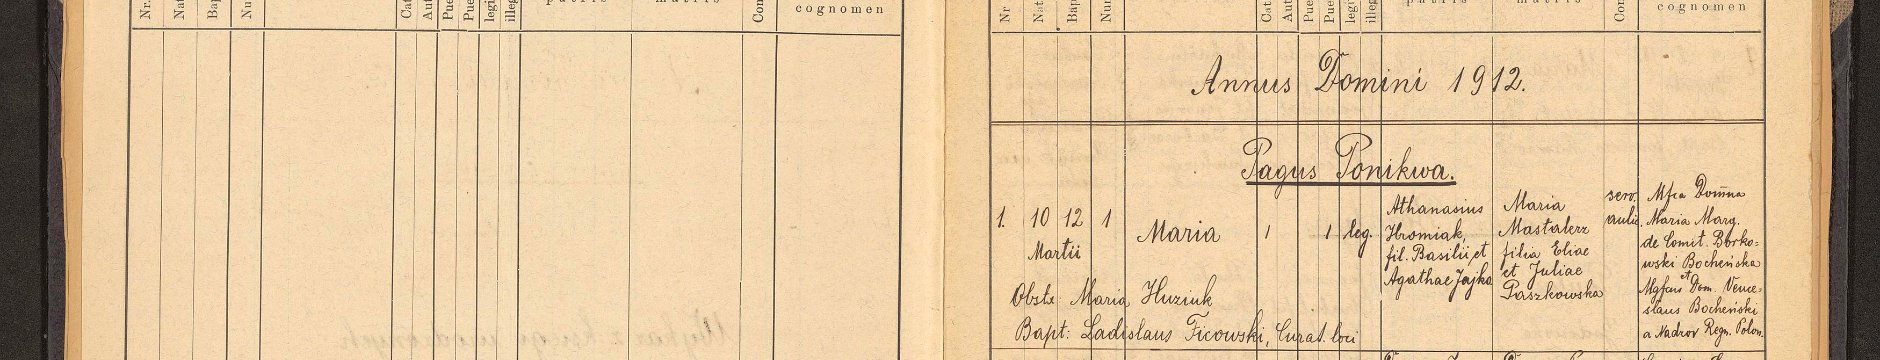 Nr. Nat Bap Nu Cat Aut Pue Pue legi illeg patris matris Con cognomen
Nr Nat Bap Nur Cat Aut Pue Pue legi illeg patris matris Con cognomen
Annus Domini 1912.
Pagus Ponikwa.
1. 10 12 1 Maria 1 1 leg.
Martii
Athanasius
Hromiak,
fil. Basilii et
Agathae Jajko
Maria
Mastalerz
filia Eliae
et Juliae
Paszkowska
serv.
aulic.
Mfca Domna
Maria Marg.
de Comit. Borko=
wski Bocheńska
et
Mgfcus Dom. Vence=
slaus Bocheński
a Nadrov Regn. Polon.
Obstr Maria Huziuk
Bapt: Ladislaus Ficowski, Curat. loci